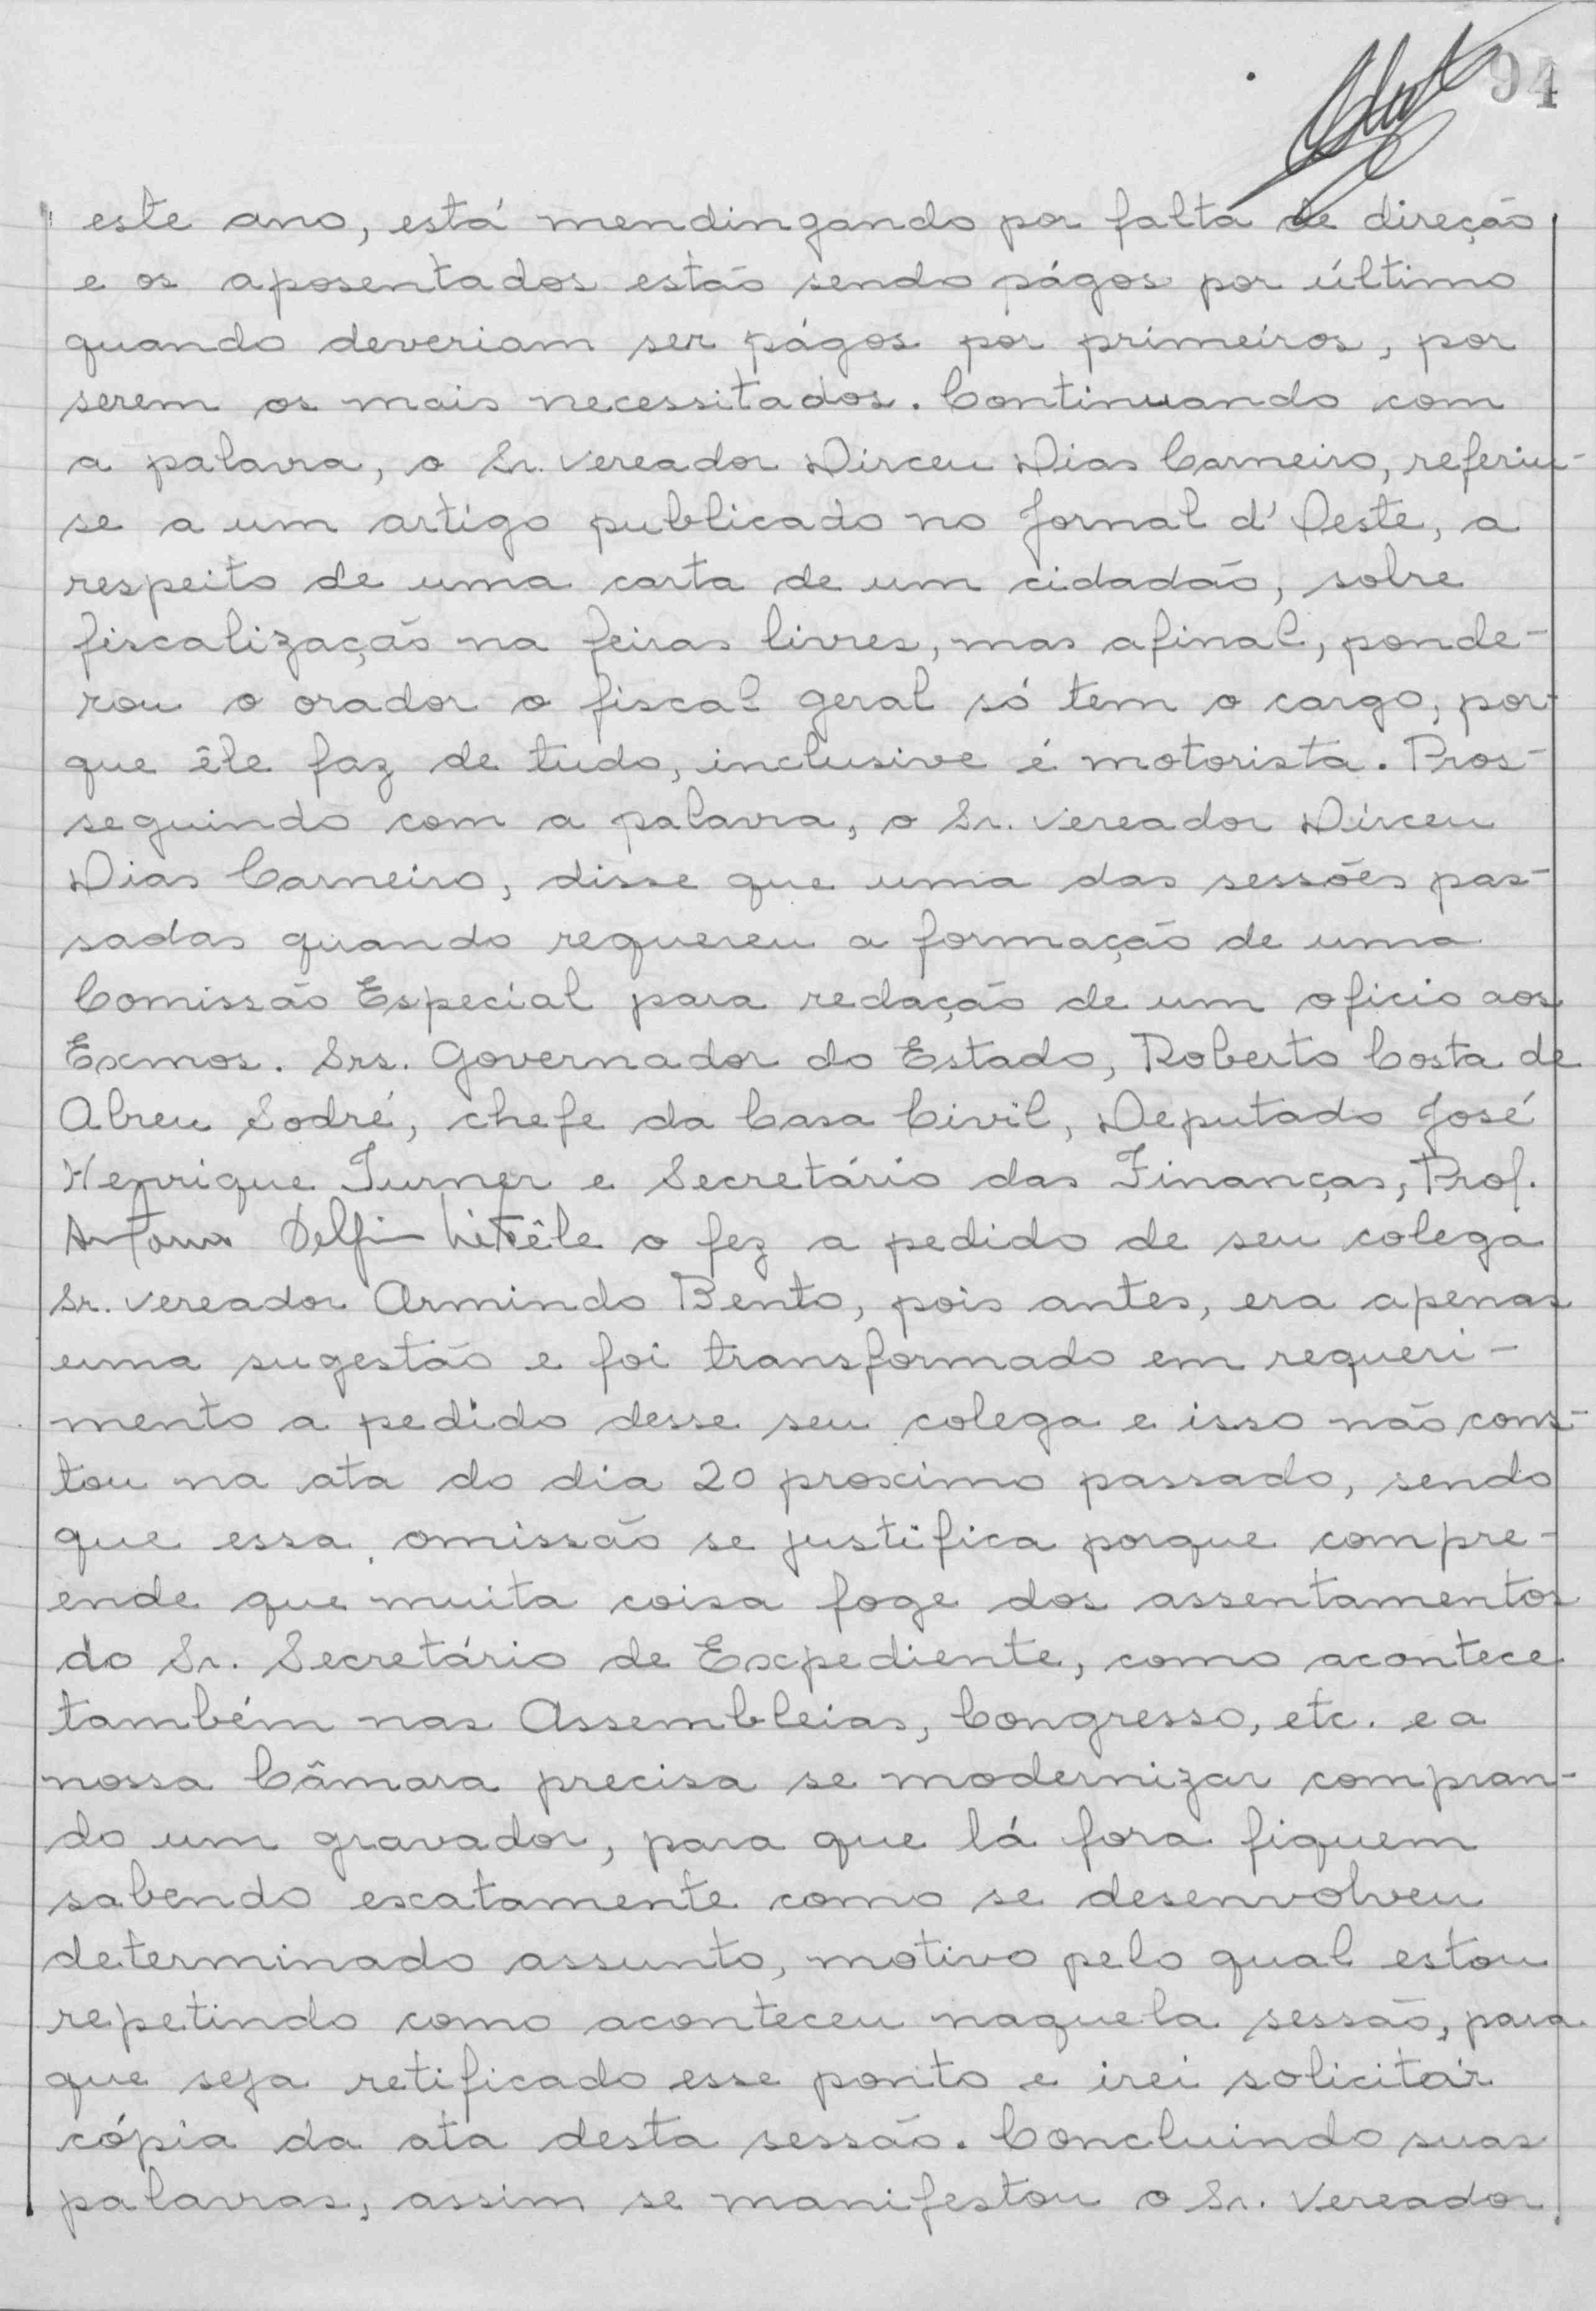 94
este ano, está mendingando por falta de direção
e os aposentados estão sendo págos por último
quando deveriam ser págos por primeiros, por
serem os mais necessitados. Continuando com
a palavra, o Sr. Vereador Dirceu Dias Carneiro, referiu-
se a um artigo publicado no Jornal d'Oeste, a
respeito de uma carta de um cidadão, sobre
fiscalização na feiras livres, mas afinal, ponde-
rou o orador o fiscal geral só tem o cargo, por-
que êle faz de tudo, inclusive é motorista. Pros-
seguindo com a palavra, o Sr. Vereador Dirceu
Dias Carneiro, disse que uma das sessões pas-
sadas quando requereu a formação de uma
Comissão Especial para redação de um oficio aos
Exmos. Srs. Governador do Estado, Roberto Costa de
Abreu Sodré, chefe da Casa Civil, Deputado José
Henrique Turner e Secretário das Finanças, Prof.
Antonio Delfin êle o fez a pedido de seu colega
Sr. Vereador Armindo Bento, pois antes, era apenas
uma sugestão e foi transformado em requeri-
mento a pedido desse seu colega e isso não cons-
tou na ata do dia 20 proximo passado, sendo
que essa omissão se justifica porque compre-
ende que muita coisa foge dos assentamentos
do Sr. Secretário de Expediente, como acontece
também nas Assembleias, Congresso, etc. e a
nossa Câmara precisa se modernizar compran-
do um gravador, para que lá fora fiquem
sabendo exatamente como se desenvolveu
determinado assunto, motivo pelo qual estou
repetindo como aconteceu naquela sessão, para
que seja retificado esse ponto e irei solicitar
cópia da ata desta sessão. Concluindo suas
palavras, assim se manifestou o Sr. Vereador